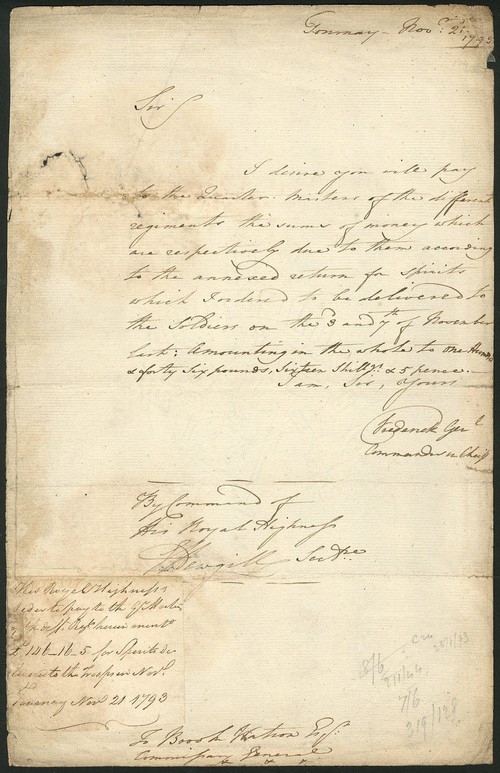 Tournay - Novr. 21st 1793
Sir
I desire you will pay
to the Quarter Masters of the different
regiments the sums of money which
are respectively due to them according
to the annexed return for Spirits
which I ordered to be delivered to
the Soldiers on the 3d and 7th of November
last: Amounting in the whole to One Hund
& forty Six pounds, Sixteen Shillgs. & 5 pence. -
I am, Sir, Yours
Frederick Genl.
Commander in Chief
By Command of
His Royal Highness
Hewgill Sectre
His Royal Highness's
order to pay to the Qr. Masters
Regts. herein mentd.
£ 146-16-5 for Spirits de
livered to the Troops in Novr.
Tournay Novr 21 1793
To Brook Watson Esqr.
Commissary General
18/6
7/6
319/128